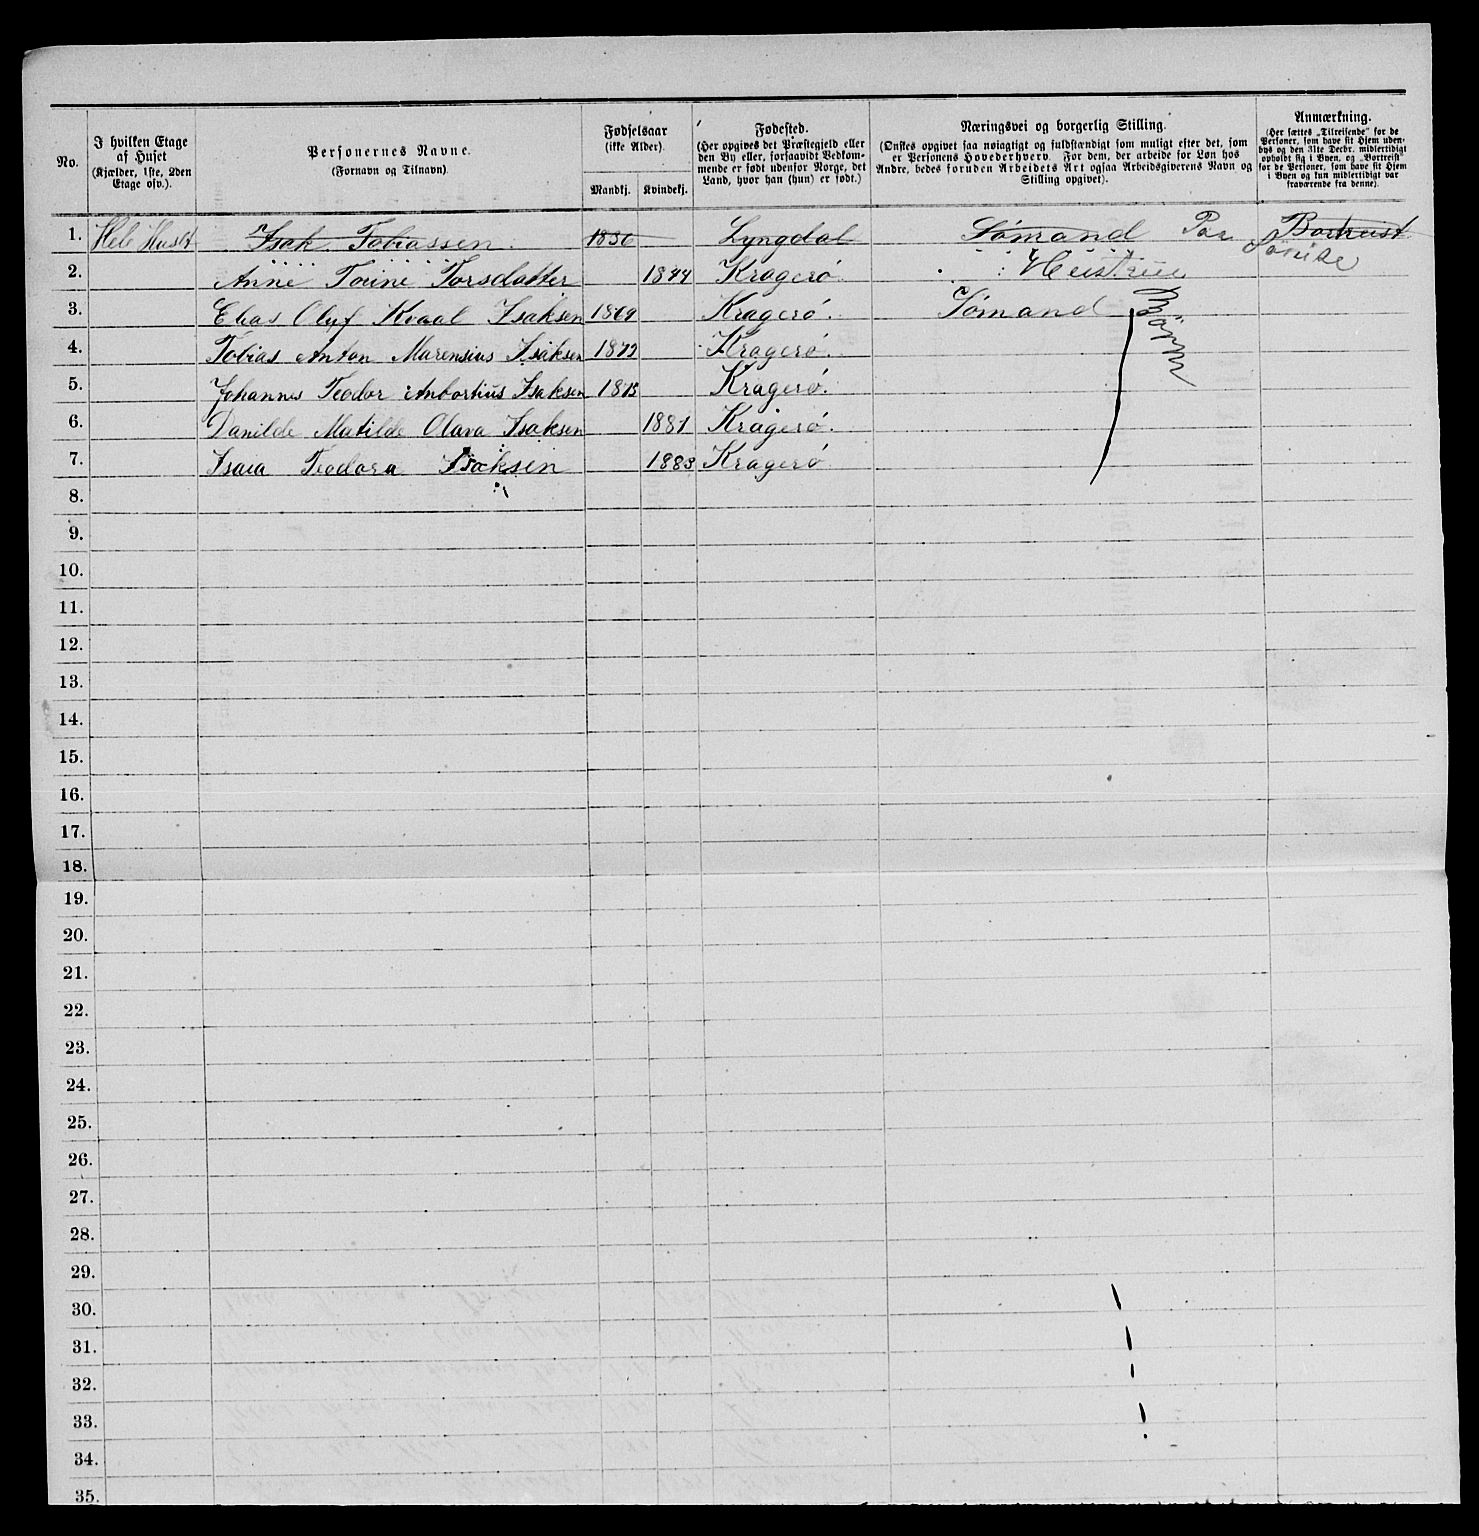 No.
I hvilken Etage af Huset (Kjælder, 1ste, 2den Etage osv.).
Personernes Navne. (Fornavn og Tilnavn)
Fødselsaar (ikke Alder).
Mandkj. Kvindekj.
Fødested. (Her opgives det Præstegjeld eller den By eller, forsaavidt Vedkommende er født udenfor Norge, det Land, hvor han (hun) er født.)
Næringsvei og borgerlig Stilling. (Ønskes opgivet saa nøiagtigt og fuldstændigt som muligt efter det, som er Personens Hovederhverv. For dem, der arbeide for Løn hos Andre, bedes foruden Arbeidets Art ogsaa Arbeidsgiverens Navn og Stilling opgivet).
Anmærkning. (Her sættes „Tilreisende" for de Personer, som have sit Hjem udenbys og den 31te Decbr. midlertidigt opholdt sig i Byen, og „Bortreist" for de Personer, som have sit Hjem i Byen og kun midlertidigt var fraværende fra denne).
1. Hele Huset Isak Tobiassen 1836 Lyngdal Sømand Bortreist
2. Anne Torine Torsdatter 1844 Kragerø Hustrue
3. Elias Oluf Kraal Isaksen 1869 Kragerø. Sømand Børn
4. Tobias Anton Marensius Isaksen 1872 Kragerø.
5. Johannes Teodor Isaksen Kragerø.
6. Danilde Matilde Olava Isaksen 1881 Kragerø.
7. Teodora Isaksen 1883 Kragerø
8.
9.
10.
11.
12.
13.
14.
15.
16.
17.
18.
19.
20.
21.
22.
23.
24.
25.
26.
27.
28.
29.
30.
31.
32.
33.
34.
35.